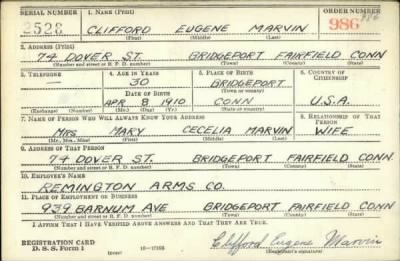 SERIAL NUMBER 1. NAME (Print) ORDER NUMBER
2528 CLIFFORD EUGENE MARVIN 986
(First) (Middle) (Last)
2. ADDRESS (Print)
74 DOVER ST. BRIDGEPORT FAIRFIELD CONN
(Number and street or R. F. D. number) (Town) (County) (State)
3. TELEPHONE 4. AGE IN YEARS 5. PLACE OF BIRTH 6. COUNTRY OF CITIZENSHIP
— 30 BRIDGEPORT
DATE OF BIRTH (Town or county)
APR 8 1910 CONN U.S.A.
(Exchange) (Number) (Mo.) (Day) (Yr.) (State or country)
7. NAME OF PERSON WHO WILL ALWAYS KNOW YOUR ADDRESS 8. RELATIONSHIP OF THAT PERSON
MRS MARY CECELIA MARVIN WIFE
(Mr., Mrs., Miss) (First) (Middle) (Last)
9. ADDRESS OF THAT PERSON
74 DOVER ST. BRIDGEPORT FAIRFIELD CONN.
(Number and street or R. F. D. number) (Town) (County) (State)
10. EMPLOYER'S NAME
REMINGTON ARMS CO.
11. PLACE OF EMPLOYMENT OR BUSINESS
939 BARNUM AVE BRIDGEPORT FAIRFIELD CONN
(Number and street or R. F. D. number) (Town) (County) (State)
I AFFIRM THAT I HAVE VERIFIED ABOVE ANSWERS AND THAT THEY ARE TRUE.
REGISTRATION CARD
D. S. S. Form 1 (over) 16—17105 Clifford Eugene Marvin